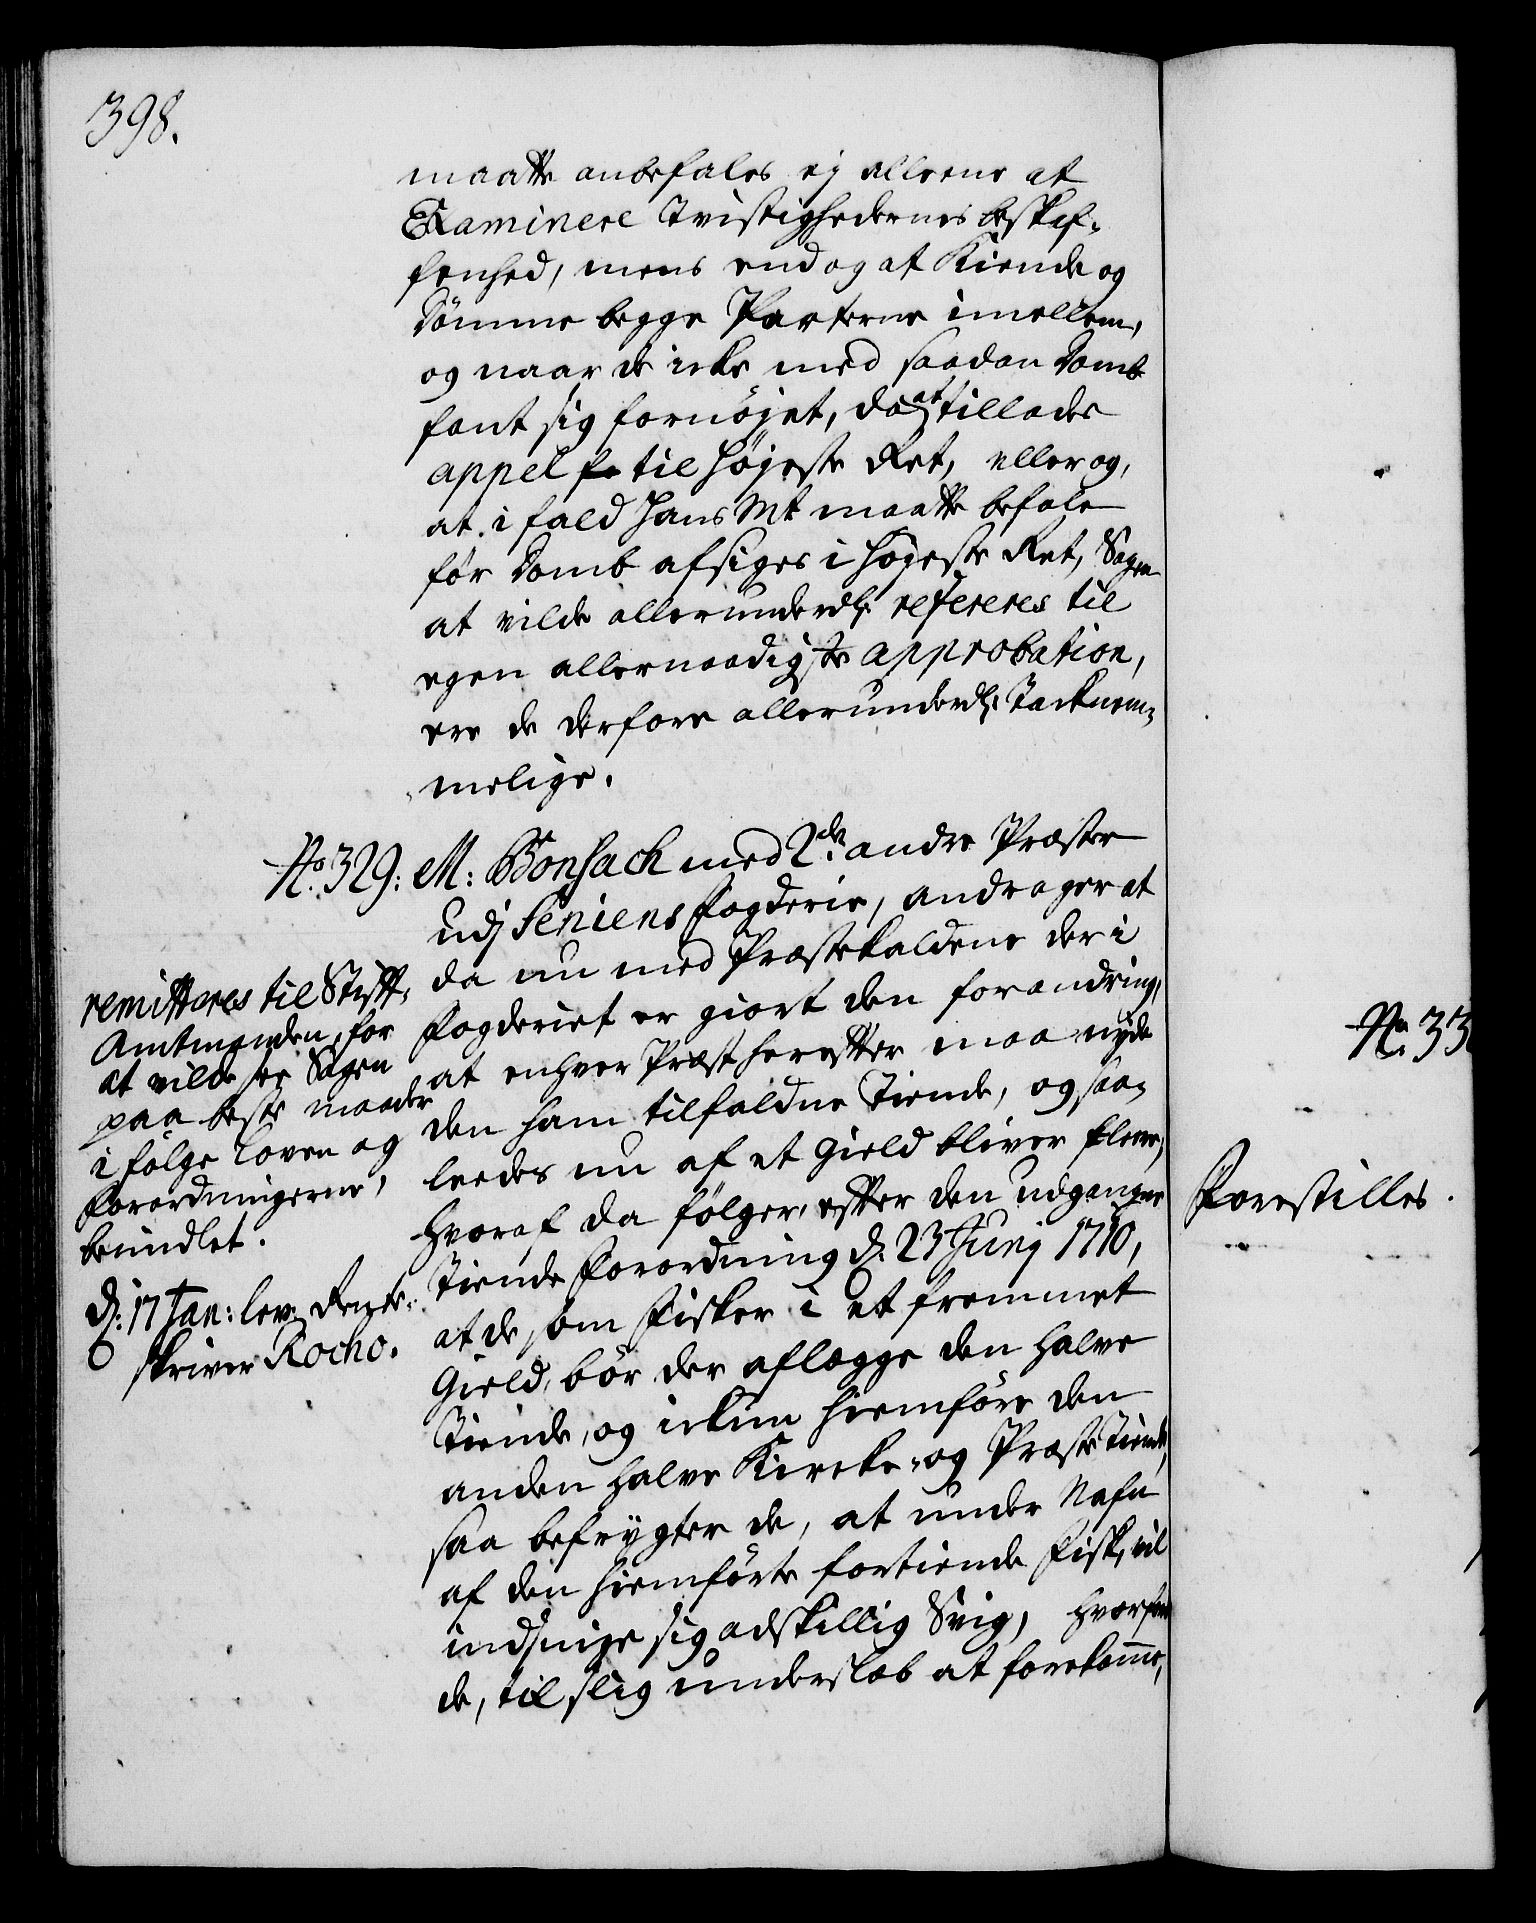 398.
maatte anbefales ej alleene at
Examinere Tvistighedernes beskaf-
fenhed, mens end og at Kiende og
dømme begge Parterne imellem,
og naar de icke med saadan Domb
fant sig fornøjet, da at tillades
appel til Højeste Ret, eller og,
at i fald Hans Mt maatte befale
før Domb afsiges i Højeste Ret, Sagen
at vilde allerunderdl: refereres til
egen allernaadigste approbation,
ere de derfore allerunderdl: Tacknem-
melige.
No. 329: M: Bonsach med 2de andre Præster
udj Seniens fogderie, andrager at
da nu med Præstekaldene der i
fogderiet er giort den forandring,
at enhver Præst herefter maa nyde
den ham tilfaldne Tiende, og saa-
leedes nu af et gield bliver fleere,
hvoraf da følger, efter den udgangne
Tiende Forordning d. 23 Junj 1710,
at de som fisker i et fremmet
Gield, bør der aflegge den halve
Tiende, og ickun hiemføre den
anden halve Kircke- og Præste Tiende,
saa befrygter de, at under Nafn
af den hiemførte fortiende fisk, vil
indsnige sig adskillig Svig, hvorfor
de, til slig underslæb at forekomme,
remitteres til Stifft-
Amtmanden, for
at vilde see Sagen
paa beste maader
i følge Loven og
forordningerne,
bemidlet.
d: 17 Jan: lev: Rente-
skriver Rocho.
No. 33
Forestilles.